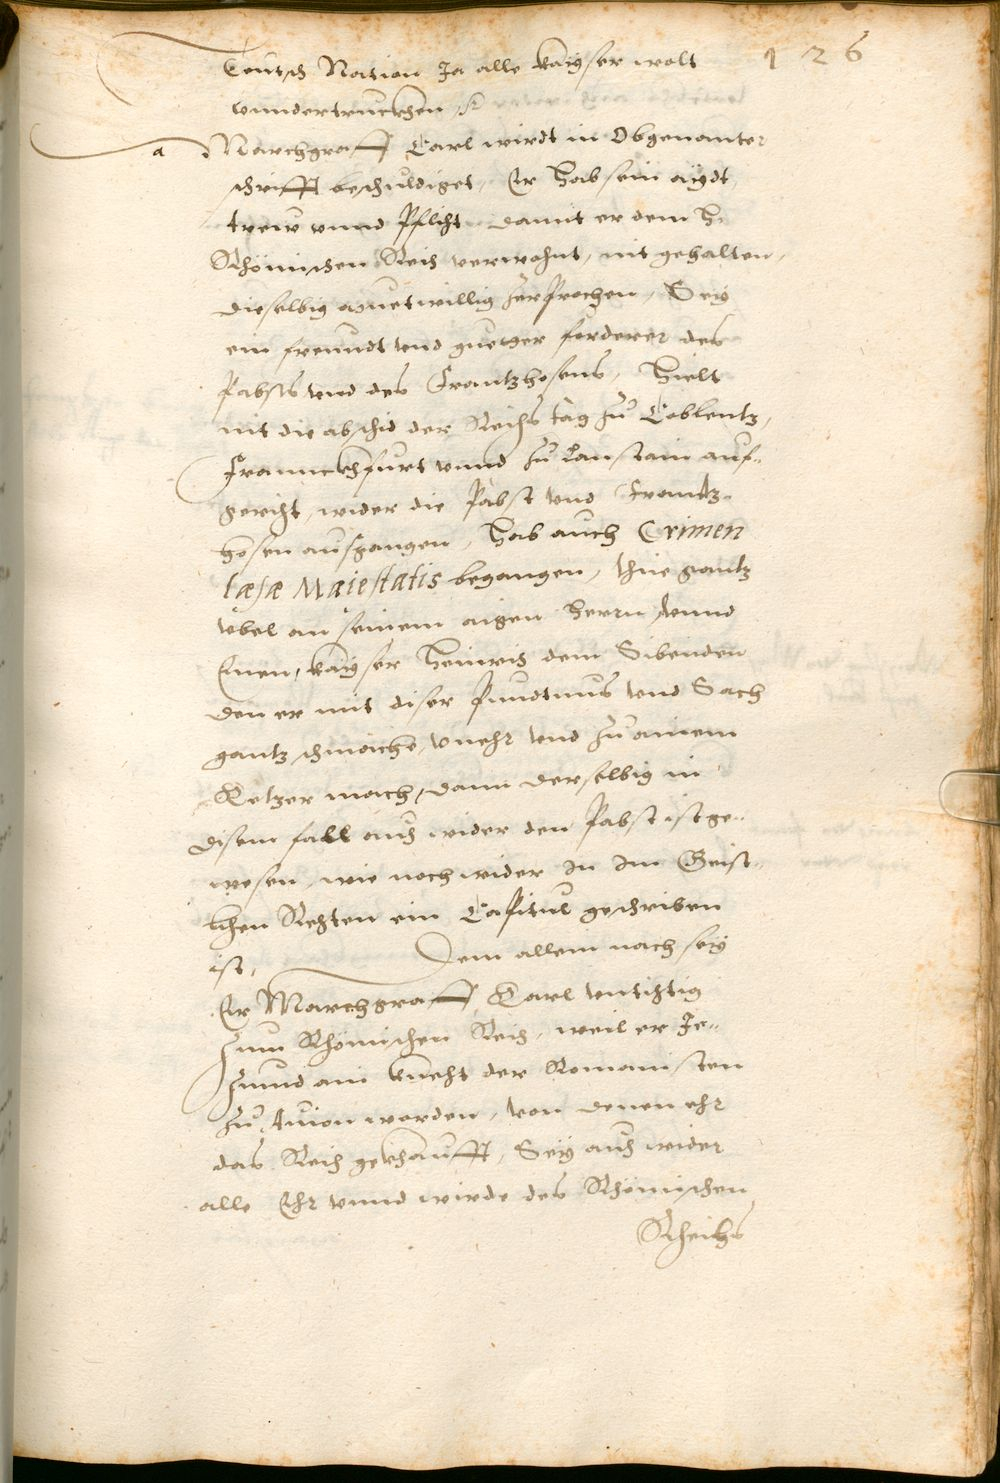 126
Teutsch Nation Ja alle kayser wolt
vnndertruckhen etc
a Marchgraff Carl wirdt in Obgenanter
schrifft beschuldiget, Er Hab sein aÿdt
trew vnnd Pflicht damit er dem H.
Rhömischen Reich verwahnt, nit gehalten,
dieselbig muetwillig zerprochen, Seÿ
ein freundt vnd gueter forderer des
Pabsts vnd des Frantzhosens, Hielt
nit die abschid der Reichstag zu Coblentz,
Frannckhfurt vnnd zu Lanstain auf-
gericht, wider die Pabst vnd Frantz-
hosen ausgangen, Hab auch Crimen
læsæ Maiestatis begangen, thue gantz
vbel an seinem aigen Herrn vnnd
Enen, kayser Heinrich dem Sibenden
den er mit diser Pundtnus vnd Sach
gantz schmäche, vnehr vnd zu ainem
Ketzer mach, dann derselbig in
disem fall auch wider den Pabst ist ge-
wesen, wie noch wider In Im Geist-
lichen Rechten ein Capitul geschriben
ist, Dem allem nach seÿ
Er Marchgraff Carl vntichtig
zum Rhömischen Reich, weil er Je-
zund ain knecht der Romanisten
zu Auion worden, von denen ehr
das Reich gekhaufft, Seÿ auch wider
alle Ehr vnnd wirde des Rhömischen
Rheichs